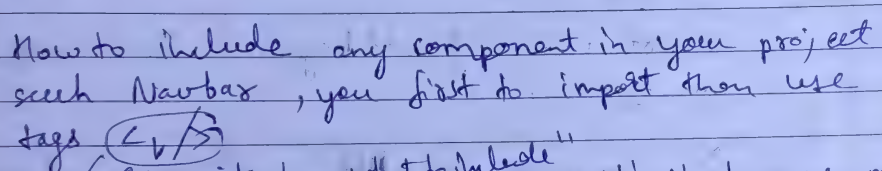 How to include any component in your project
such Navbar, you first to import then use
tags </>
"to include"